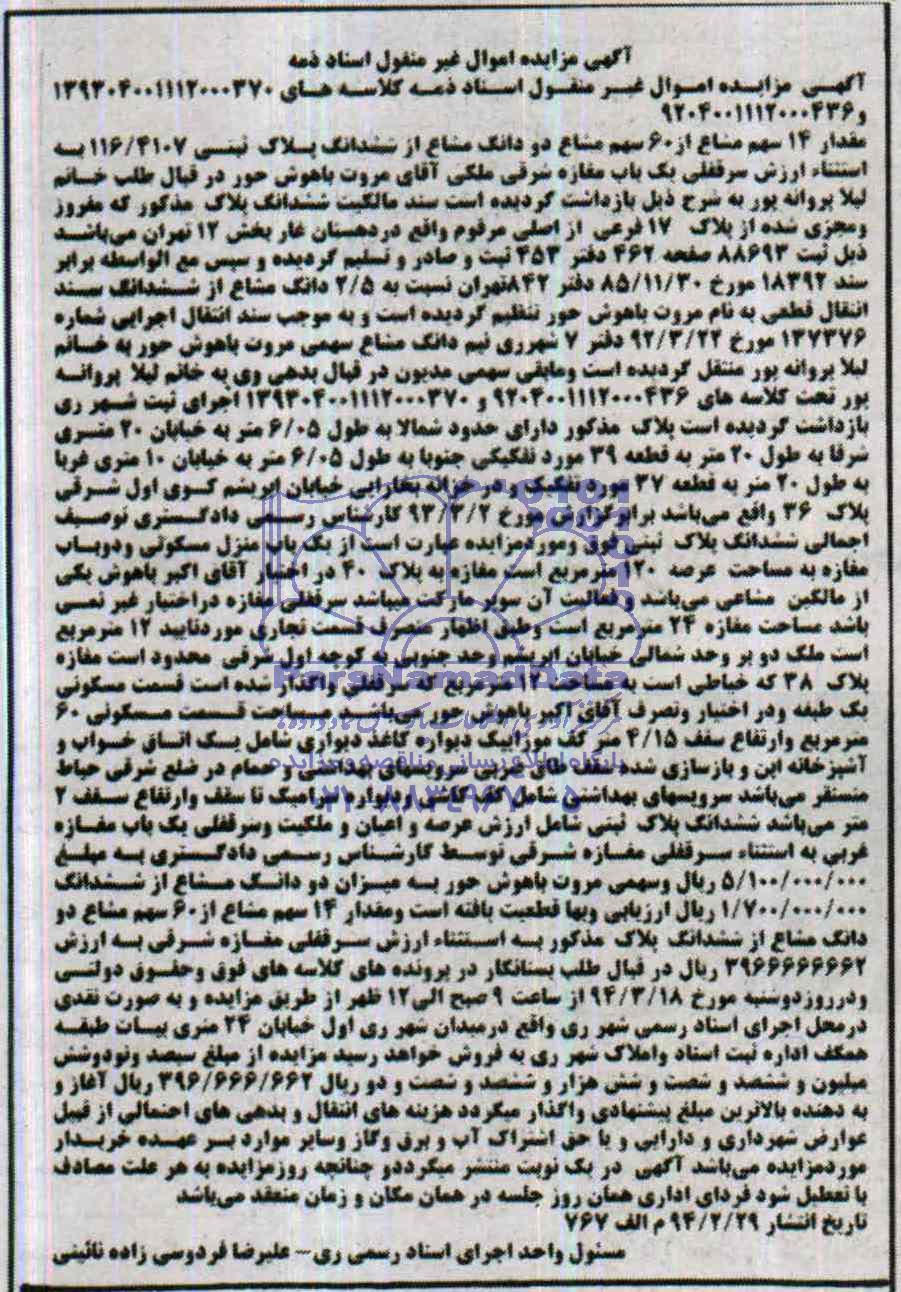 آگهی مزایده اموال غیر منقول اسناد ذمه
آگهی مزایده اموال غیر منقول اسناد ذمه کلاسه های ۱۳۹۳۰۴۰۰۱۱۱۲۰۰۰۳۷۰
و ۹۲۰۴۰۰۱۱۱۲۰۰۰۴۳۶
مقدار ۱۴ سهم مشاع از ۶۰ سهم مشاع دو دانگ مشاع از ششدانگ پلاک ثبتی ۱۱۶/۴۱۰۷ به
استثناء ارزش سرقفلی یک باب مغازه شرقی ملکی آقای مروت باهوش حور در قبال طلب خانم
لیلا پروانه پور به شرح ذیل بازداشت گردیده است سند مالکیت ششدانگ پلاک مذکور که مفروز
ومجزی شده از پلاک ۱۷ فرعی از اصلی مرقوم واقع در دهستان غار بخش ۱۲ تهران می‌باشد
ذیل ثبت ۸۸۶۹۳ صفحه ۴۶۲ دفتر ۴۵۳ ثبت و صادر و تسلیم گردیده و سپس مع الواسطه برابر
سند ۱۸۳۹۲ مورخ ۸۵/۱۱/۳۰ دفتر ۸۴۲تهران نسبت به ۲/۵ دانگ مشاع از ششدانگ سند
انتقال قطعی به نام مروت باهوش حور تنظیم گردیده است و به موجب سند انتقال اجرایی شماره
۱۳۷۳۷۶ مورخ ۹۲/۳/۲۲ دفتر ۷ شهرری نیم دانگ مشاع سهمی مروت باهوش حور به خانم
لیلا پروانه پور منتقل گردیده است ومابقی سهمی مدیون در قبال بدهی وی به خانم لیلا پروانه
پور تحت کلاسه های ۹۲۰۴۰۰۱۱۱۲۰۰۰۴۳۶ و ۱۳۹۳۰۴۰۰۱۱۱۲۰۰۰۳۷۰ اجرای ثبت شهر ری
بازداشت گردیده است پلاک مذکور دارای حدود شمالا به طول ۶/۰۵ متر به خیابان ۲۰ متری
شرقا به طول ۲۰ متر به قطعه ۳۹ مورد تفکیکی جنوبا به طول ۶/۰۵ متر به خیابان ۱۰ متری غربا
به طول ۲۰ متر به قطعه ۳۷ مورد تفکیک و در خزانه بخارایی خیابان ابریشم کوی اول شرقی
پلاک ۳۶ واقع می‌باشد برابر گزارش مورخ ۹۳/۳/۲ کارشناس رسمی دادگستری توصیف
اجمالی ششدانگ پلاک ثبتی فوق وموردمزایده عبارت است از یک باب منزل مسکونی ودوباب
مغازه به مساحت عرصه ۱۲۰ مترمربع است مغازه به پلاک ۴۰ در اختیار آقای اکبر باهوش یکی
از مالکین مشاعی می‌باشد و فعالیت آن سوپر مارکت میباشد سرقفلی مغازه دراختیار غیر نمی
باشد مساحت مغازه ۲۴ مترمربع است وطبق اظهار متصرف قسمت تجاری موردتایید ۱۲ مترمربع
است ملک دو بر وحد شمالی خیابان ابریشم وحد جنوبی به کوچه اول شرقی محدود است مغازه
پلاک ۳۸ که خیاطی است به مساحت ۱۲ مترمربع که سرقفلی واگذار شده است قسمت مسکونی
یک طبقه ودر اختیار وتصرف آقای اکبر باهوش حور می‌باشد مساحت قسمت مسکونی ۶۰
مترمربع وارتفاع سقف ۴/۱۵ متر کف موزاییک دیواره کاغذ دیواری شامل یک اتاق خواب و
آشپزخانه اپن و بازسازی شده سقف طاق ضربی سرویسهای بهداشتی و حمام در ضلع شرقی حیاط
مستقر می‌باشد سرویسهای بهداشتی شامل کف کاشی و دیواره سرامیک تا سقف وارتفاع سقف ۲
متر می‌باشد ششدانگ پلاک ثبتی شامل ارزش عرصه و اعیان و ملکیت وسرقفلی یک باب مغازه
غربی به استثناء سرقفلی مغازه شرقی توسط کارشناس رسمی دادگستری به مبلغ
۵/۱۰۰/۰۰۰/۰۰۰ ریال وسهمی مروت باهوش حور به میزان دو دانگ مشاع از ششدانگ
۱/۷۰۰/۰۰۰/۰۰۰ ریال ارزیابی وبها قطعیت یافته است ومقدار ۱۴ سهم مشاع از ۶۰ سهم مشاع دو
دانگ مشاع از ششدانگ پلاک مذکور به استثناء ارزش سرقفلی مغازه شرقی به ارزش
۳۹۶۶۶۶۶۶۶۲ ریال در قبال طلب بستانکار در پرونده های کلاسه های فوق وحقوق دولتی
ودرروزدوشنبه مورخ ۹۴/۳/۱۸ از ساعت ۹ صبح الی۱۲ ظهر از طریق مزایده و به صورت نقدی
درمحل اجرای اسناد رسمی شهر ری واقع درمیدان شهر ری اول خیابان ۲۴ متری بیات طبقه
همکف اداره ثبت اسناد واملاک شهر ری به فروش خواهد رسید مزایده از مبلغ سیصد ونودوشش
میلیون و ششصد و شصت و شش هزار و ششصد و شصت و دو ریال ۳۹۶/۶۶۶/۶۶۲ ریال آغاز و
به دهنده بالاترین مبلغ پیشنهادی واگذار میگردد هزینه های انتقال و بدهی های احتمالی از قبیل
عوارض شهرداری و دارایی و یا حق اشتراک آب و برق وگاز وسایر موارد بر عهده خریدار
موردمزایده می‌باشد آگهی در یک نوبت منتشر میگرددو چنانچه روزمزایده به هر علت مصادف
با تعطیل شود فردای اداری همان روز جلسه در همان مکان و زمان منعقد می‌باشد
تاریخ انتشار ۹۴/۲/۲۹ م الف ۷۶۷
مسئول واحد اجرای اسناد رسمی ری– علیرضا فردوسی زاده نائینی
ParsNamadData
پایگاه اطلاع رسانی مناقصه و مزایده